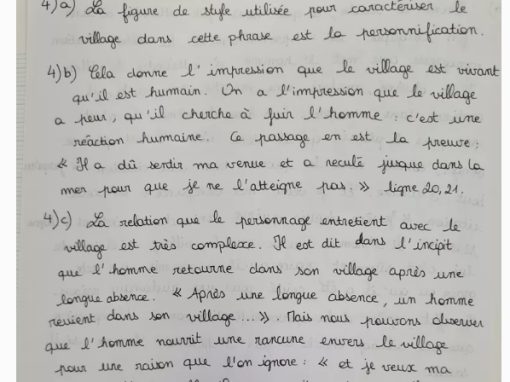 4)a) La figure de style utilisée pour caractériser le
village dans cette phrase est la personnification.
4)b) Cela donne l'impression que le village est vivant
qu'il est humain. On a l'impression que le village
a peur, qu'il cherche à fuir l'homme : c'est une
réaction humaine. Ce passage en est la preuve :
« Il a dû sentir ma venue et a reculé jusque dans la
mer pour que je ne l'atteigne pas. » ligne 20,21.
4)c) La relation que le personnage entretient avec le
village est très complexe. Il est dit dans l'incipit
que l'homme retourne dans son village après une
longue absence. « Après une longue absence, un homme
revient dans son village ... ». Mais nous pouvons observer
que l'homme nourrit une rancune envers le village
pour une raison que l'on ignore : « et je veux ma